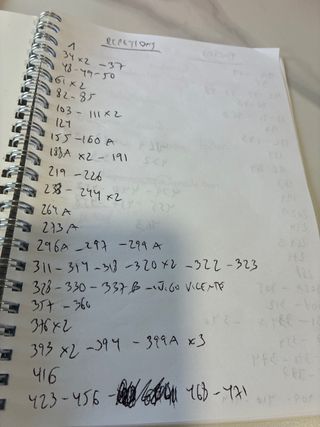 REPETIDAS
1
34 x2 - 37
48 - 49 - 50
61 x2
82 - 85
103 - 111 x2
124
155 - 160 A
188A x2 - 191
219 - 226
238 - 244 x2
264 A
273 A
296A - 297 - 299A
311 - 314 - 318 - 320 x2 - 322 - 323
328 - 330 - 337 B - IÑIGO VICENTE
357 - 360
376 x2
393 x2 - 394 - 399A x3
416
423 - 456 - 468 - 471